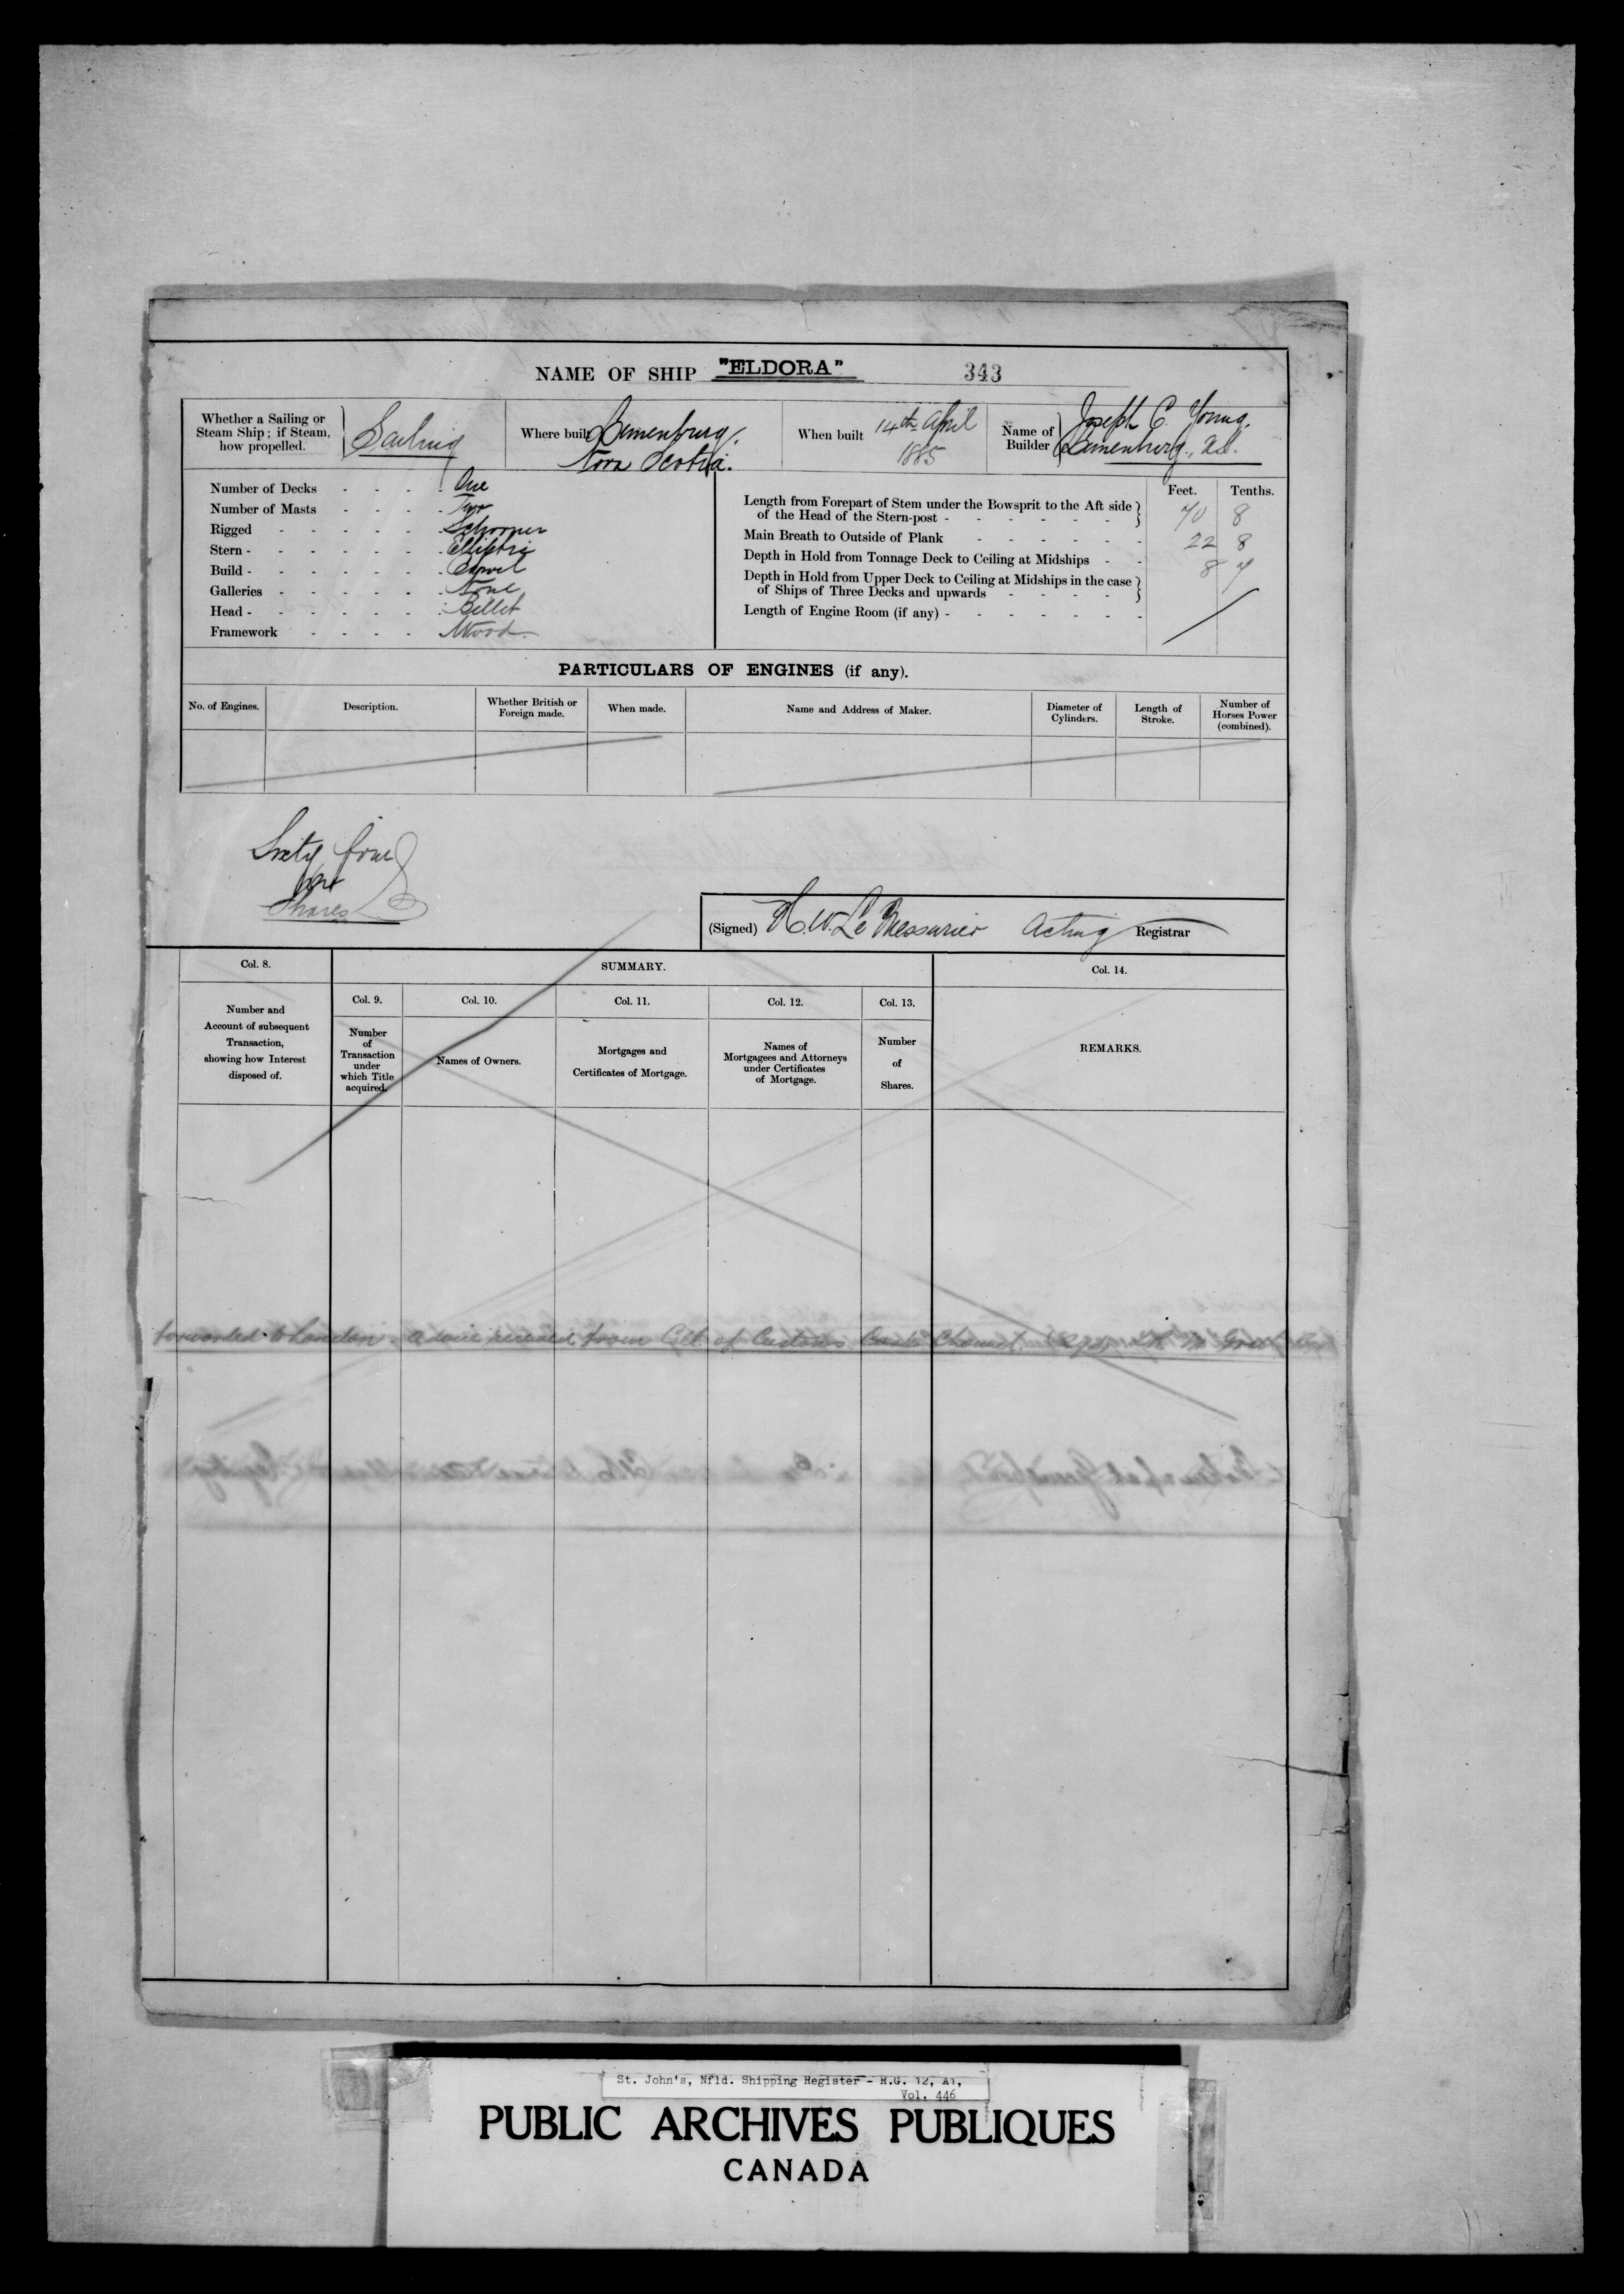 NAME OF SHIP "ELDORA" 343
Whether a Sailing or
Steam Ship; if Steam,
how propelled.
Sailing
Where built Lunenburg.
Nova Scotia.
When built 14th April
1885
Name of
Builder
Joseph C. Young.
Lunenburg, N.S.
Number of Decks - - - - One
Number of Masts - - - - Two
Rigged - - - - - Schooner
Stern - - - - - - Elliptic
Build - - - - - - Carvel
Galleries - - - - - None
Head - - - - - - Billet
Framework - - - - Wood
Feet. Tenths.
Length from Forepart of Stem under the Bowsprit to the Aft side
of the Head of the Stern-post - - - - - - 70 8
Main Breath to Outside of Plank - - - - - 22 8
Depth in Hold from Tonnage Deck to Ceiling at Midships - - 8 7
Depth in Hold from Upper Deck to Ceiling at Midships in the case
of Ships of Three Decks and upwards - - - -
Length of Engine Room (if any) - - - - - - -
PARTICULARS OF ENGINES (if any).
No. of Engines.
Description.
Whether British or
Foreign made.
When made.
Name and Address of Maker.
Diameter of
Cylinders.
Length of
Stroke.
Number of
Horses Power
(combined).
Sixty four
Shares
(Signed) H. W. Le Messurier Acting Registrar
Col. 8.
Number and
Account of subsequent
Transaction,
showing how Interest
disposed of.
SUMMARY.
Col. 9.
Number
of
Transaction
under
which Title
acquired.
Col. 10.
Names of Owners.
Col. 11.
Mortgages and
Certificates of Mortgage.
Col. 12.
Names of
Mortgagees and Attorneys
under Certificates
of Mortgage.
Col. 13.
Number
of
Shares.
Col. 14.
REMARKS.
forwarded to London. Advice received from Coll. of Customs
St. John's, Nfld. Shipping Register - R.G. 12, A1,
Vol. 446
PUBLIC ARCHIVES PUBLIQUES
CANADA